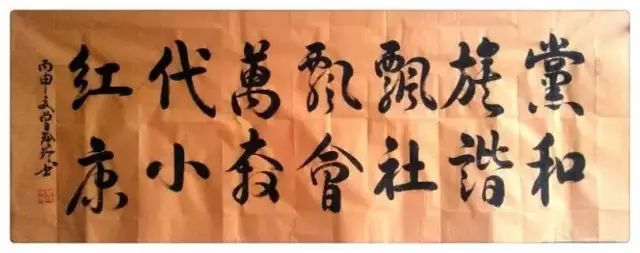 黨旗飄飄萬代紅
和諧社會奔小康
丙申